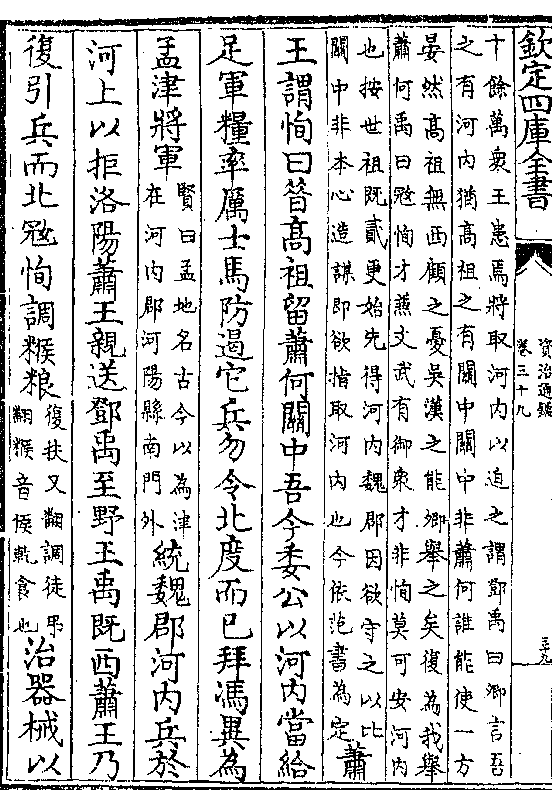 欽定四庫全書
資治通鑑
卷三十九
三十九
十餘萬衆王患焉將取河内以迫之謂鄧禹曰卿言吾
之有河内猶髙祖之有關中關中非蕭何誰能使一方
晏然髙祖無西顧之憂吳漢之能卿舉之矣復為我舉
蕭何禹曰宼恂才兼文武有御衆才非恂莫可安河内
也按世祖既貳更始先得河内魏郡因欲守之以比
關中非本心造謀即欲指取河内也今依范書為定
蕭
王謂恂曰昔髙祖留蕭何關中吾今委公以河内當給
足軍糧率厲士馬防遏它兵勿令北度而已拜馮異為
孟津將軍
賢曰孟地名古今以為津
在河内郡河陽縣南門外
統魏郡河内兵於
河上以拒洛陽蕭王親送鄧禹至野王禹既西蕭王乃
復引兵而北宼恂調糇粮
復扶又翻調徒弔
翻糇音侯乾食也
治器械以